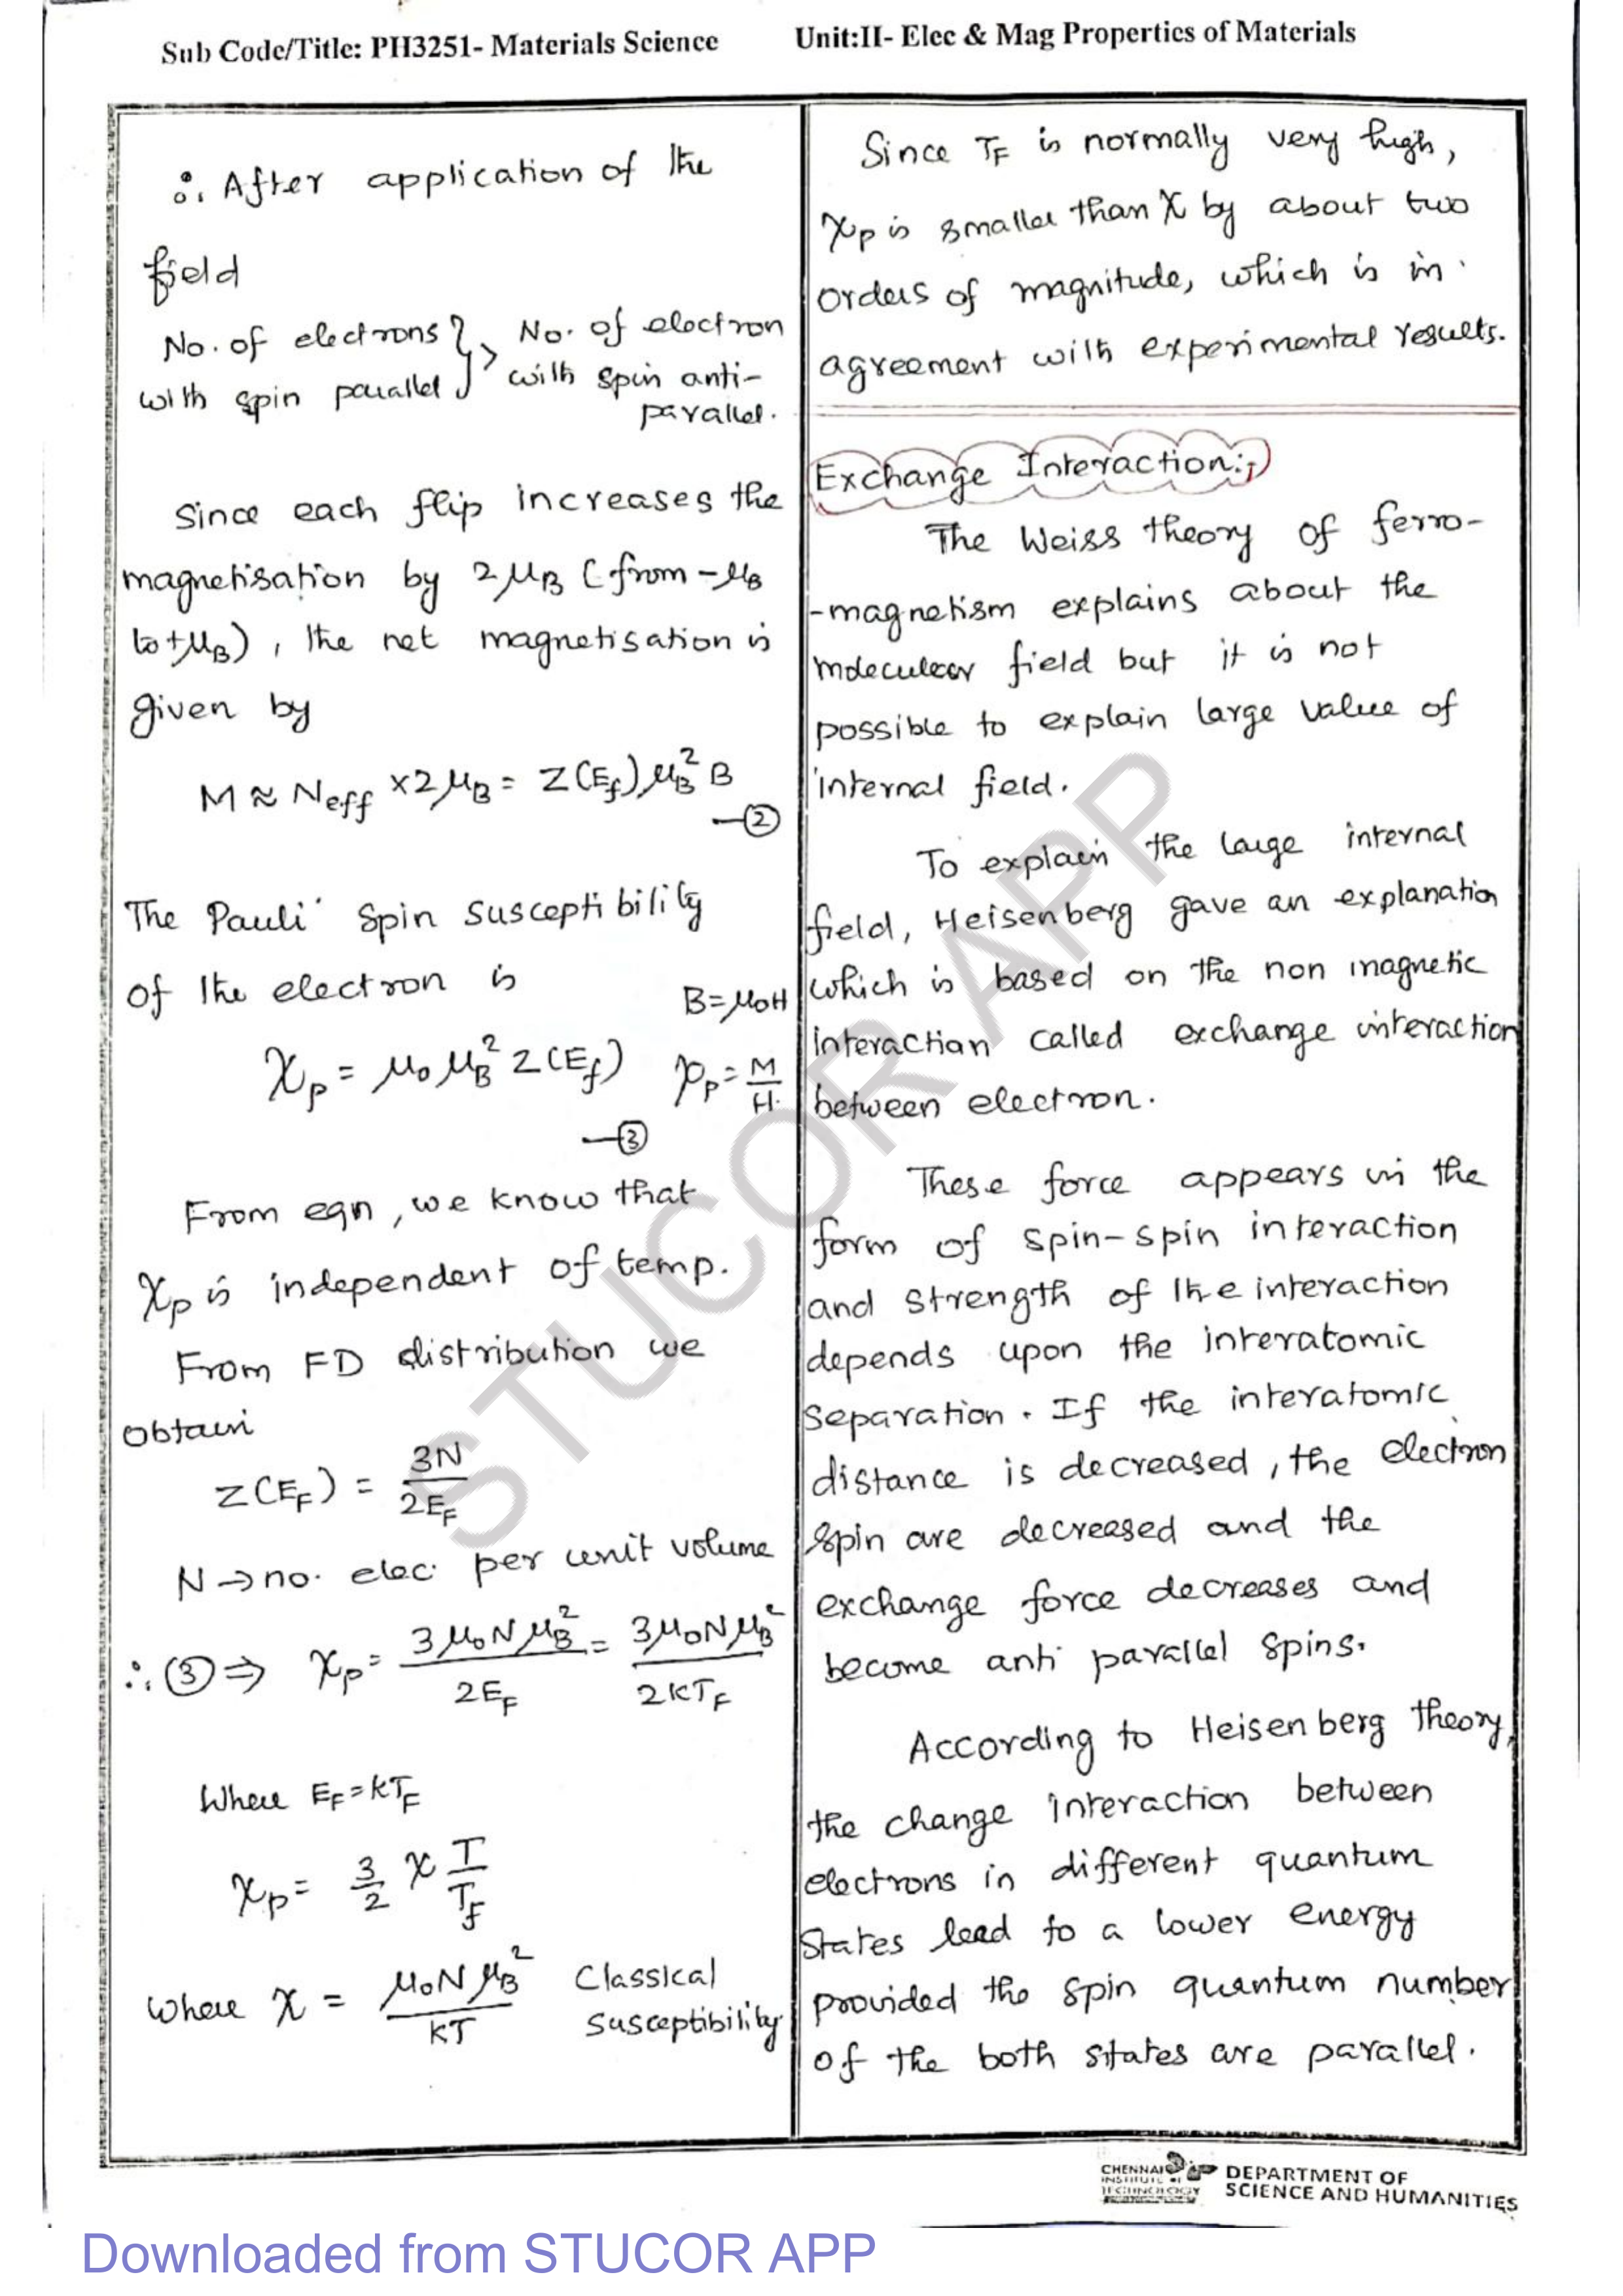 Sub Code/Title: PH3251- Materials Science Unit:II- Elec & Mag Properties of Materials
∴ After application of the
field
No. of electrons } > No. of electron
with spin parallel with spin anti-
parallel.
Since each flip increases the
magnetisation by 2μB (from -μB
to +μB), the net magnetisation is
given by
M ≈ Neff × 2μB = Z(Ef) μB² B
—②
The Pauli Spin susceptibility
of the electron is
B=μ0H
χp = μ0 μB² Z(Ef) χp = M/H.
—③
From eqn, we know that
χp is independent of temp.
From FD distribution we
obtain
Z(EF) = 3N/2EF
N → no. elec. per unit volume
∴ ③ ⇒ χp = 3μ0NμB²/2EF = 3μ0NμB²/2KTF
Where EF=kTF
χp = 3/2 χ T/Tf
where χ = μ0NμB²/KT Classical
susceptibility
Since TF is normally very high,
χp is smaller than χ by about two
orders of magnitude, which is in
agreement with experimental results.
Exchange Interaction:
The Weiss theory of ferro-
-magnetism explains about the
moleculear field but it is not
possible to explain large value of
internal field.
To explain the large internal
field, Heisenberg gave an explanation
which is based on the non magnetic
interaction called exchange interaction
between electron.
These force appears in the
form of spin-spin interaction
and strength of the interaction
depends upon the interatomic
separation. If the interatomic
distance is decreased, the electron
spin are decreased and the
exchange force decreases and
become anti parallel spins.
According to Heisenberg theory,
the change interaction between
electrons in different quantum
states lead to a lower energy
provided the spin quantum number
of the both states are parallel.
STUCOR APP
CHENNAI
INSTITUTE OF
TECHNOLOGY
DEPARTMENT OF
SCIENCE AND HUMANITIES
Downloaded from STUCOR APP